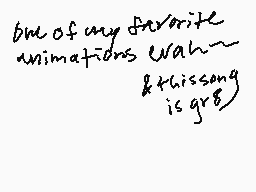 one of my favorite
animations evah~
& this song
is gr8